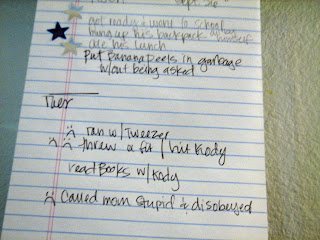 Sept. 26
got ready & went to school
hung up his backpack himself
ate his lunch
Put Banana Peels in garbage
w/out being asked
Tues
ran w/Tweezer
threw a fit / hit Kody
read Books w/ Kody
Called mom Stupid & disobeyed